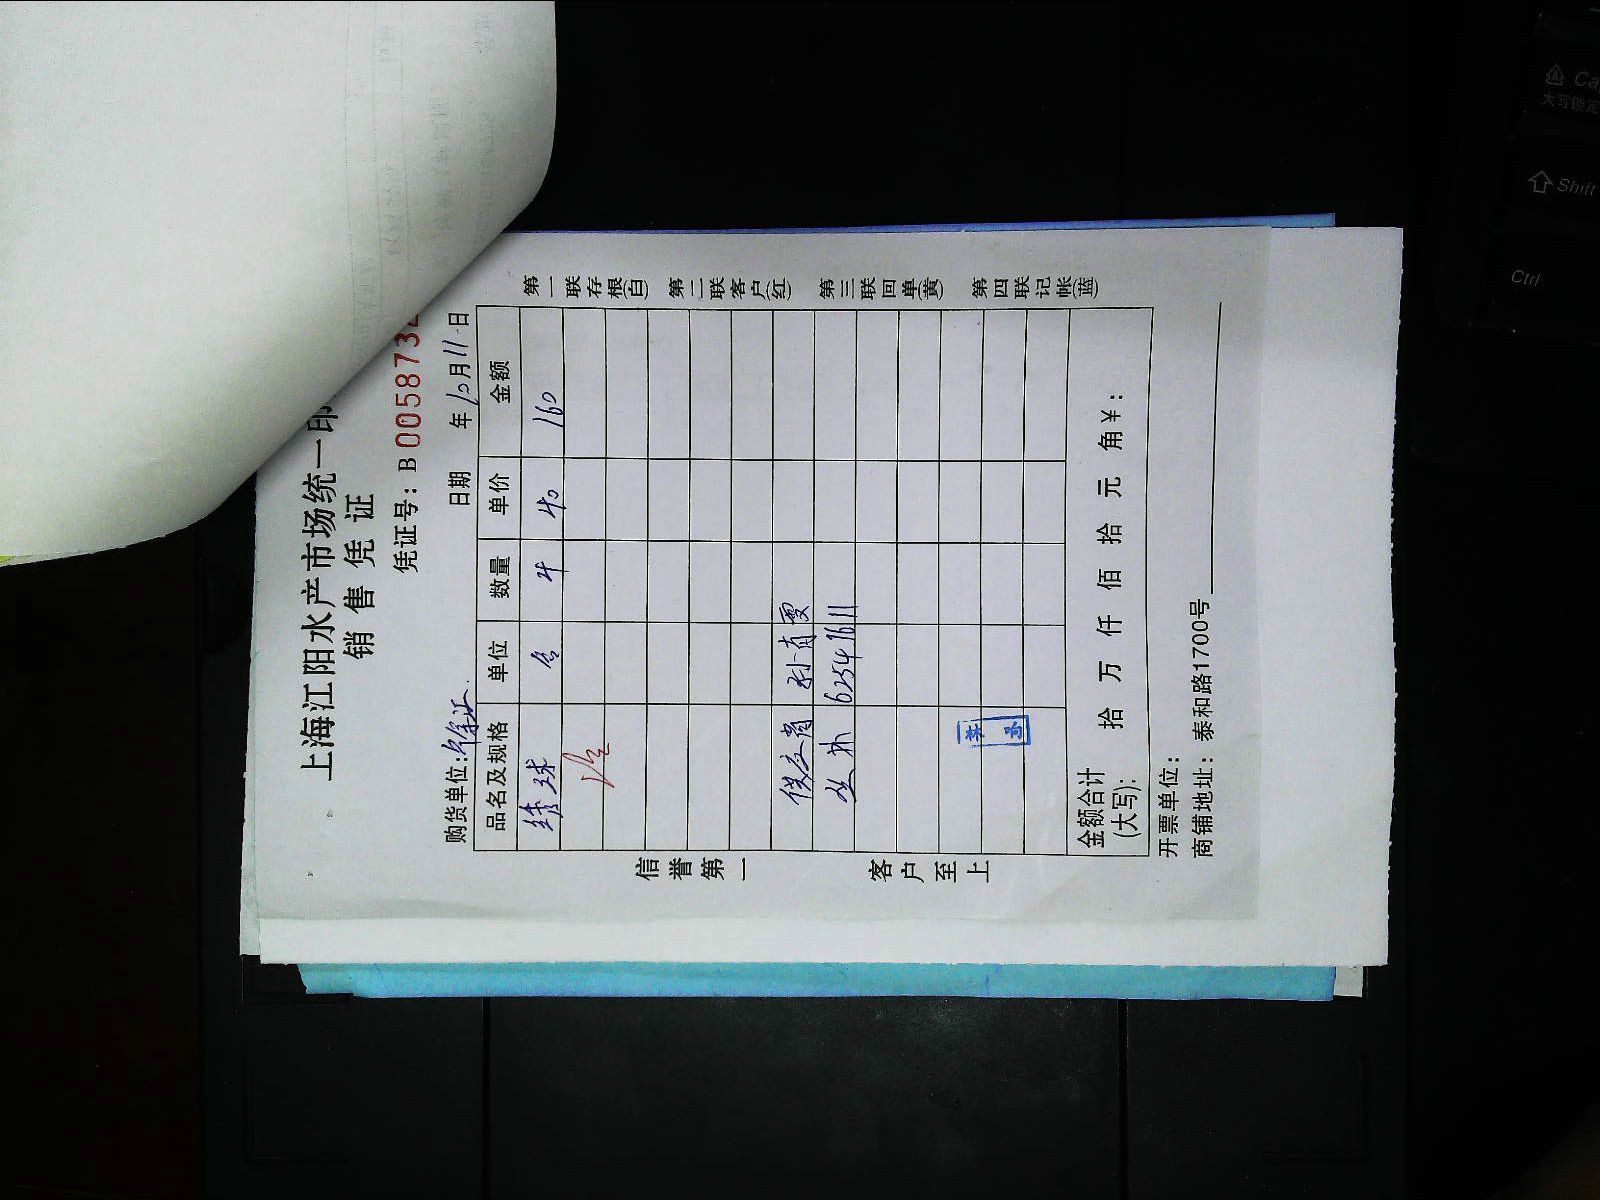 上海江阳水产市场统一印
销售凭证
凭证号：B 0058732
购货单位：徐汇 日期 年10月11日
品名及规格 单位 数量 单价 金额
4 40 160
孙肖雯
62547611
金额合计(大写): 拾 万 仟 佰 拾 元 角￥：
开票单位：
商铺地址：泰和路1700号
信誉第一 客户至上
第一联存根(白) 第二联客户(红) 第三联回单(黄) 第四联记帐(蓝)
Ca
大写锁定
Shift
Ctrl